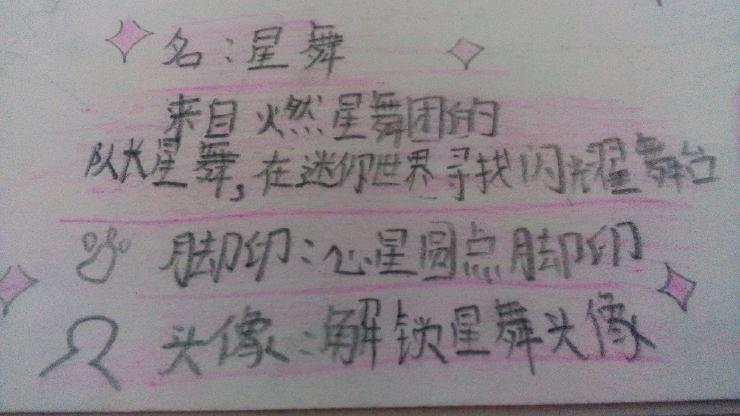 名：星舞
来自火燃星舞团的
队长星舞，在迷你世界寻找闪光耀舞台
脚印：心星圆点脚印
头像：解锁星舞头像